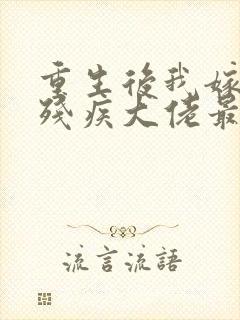 重生後我嫁
殘疾大佬最
流言流語